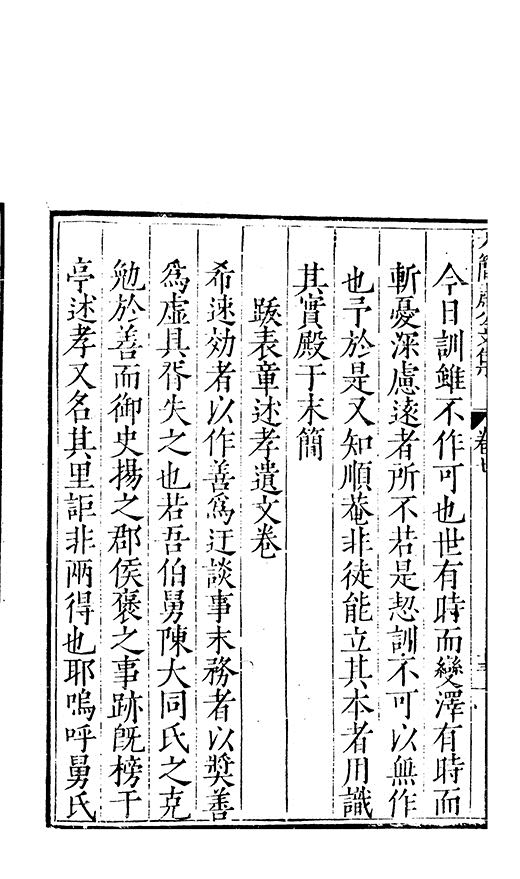 今日訓雖不作可也世有時而變澤有時而
斬憂深慮遠者所不若是恝訓不可以無作
也予於是又知順菴非徒能立其本者用識
其實殿于末簡
跋表童述孝遺文卷
希速効者以作善爲迂談事末務者以奬善
爲虛具胥失之也若吾伯舅陳大同氏之克
勉於善而御史揚之郡侯褒之事跡旣榜于
亭述孝又名其里詎非兩得也耶嗚呼舅氏